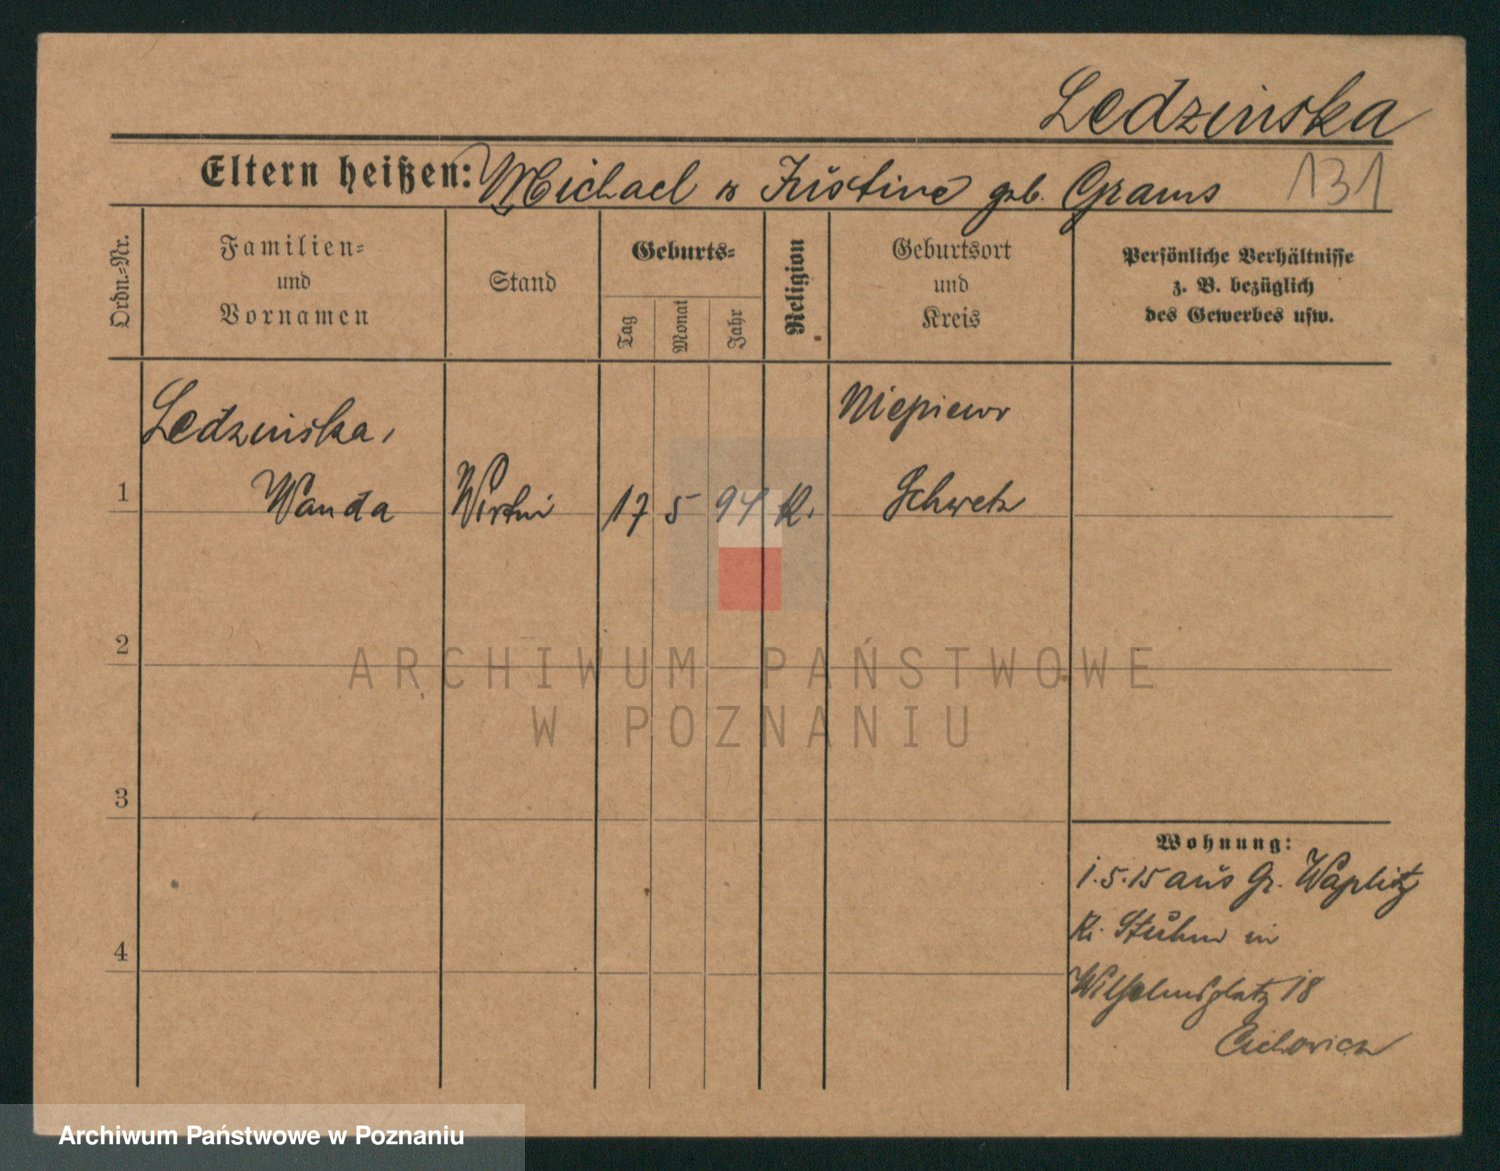 Ledzinska
Eltern heißen: Michael u Justine geb. Grams 131
Ordn.-Nr.
Familien-
und
Vornamen
Stand
Geburts-
Tag
Monat
Jahr
Religion
Geburtsort
und
Kreis
Persönliche Verhältnisse
z. B. bezüglich
des Gewerbes usw.
Ledzinska,
Niepiewo
1 Wanda 17 5 94 K. Schwetz
2
ARCHIWUM PAŃSTWOWE
W POZNANIU
3
Wohnung:
1.5.15 aus Gr. Waplitz
Kr. Stuhm in
4
Wilhelmsplatz 18
Cichowicz
Archiwum Państwowe w Poznaniu